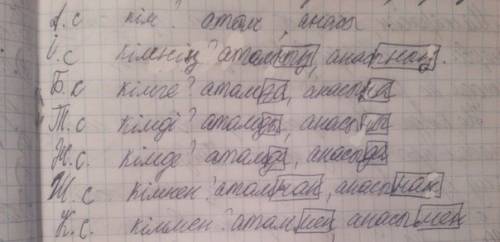 А.с кім? атам, анасы.
І.с кімнің? атамның, анасының.
Б.с кімге? атамда, анасына
Т.с кімді? атамды, анасы
Ж.с. кімде? атамда, анасында
Ш.с кімнен? атамнан, анасынан
К.с. кіммен? атаммен анасымен